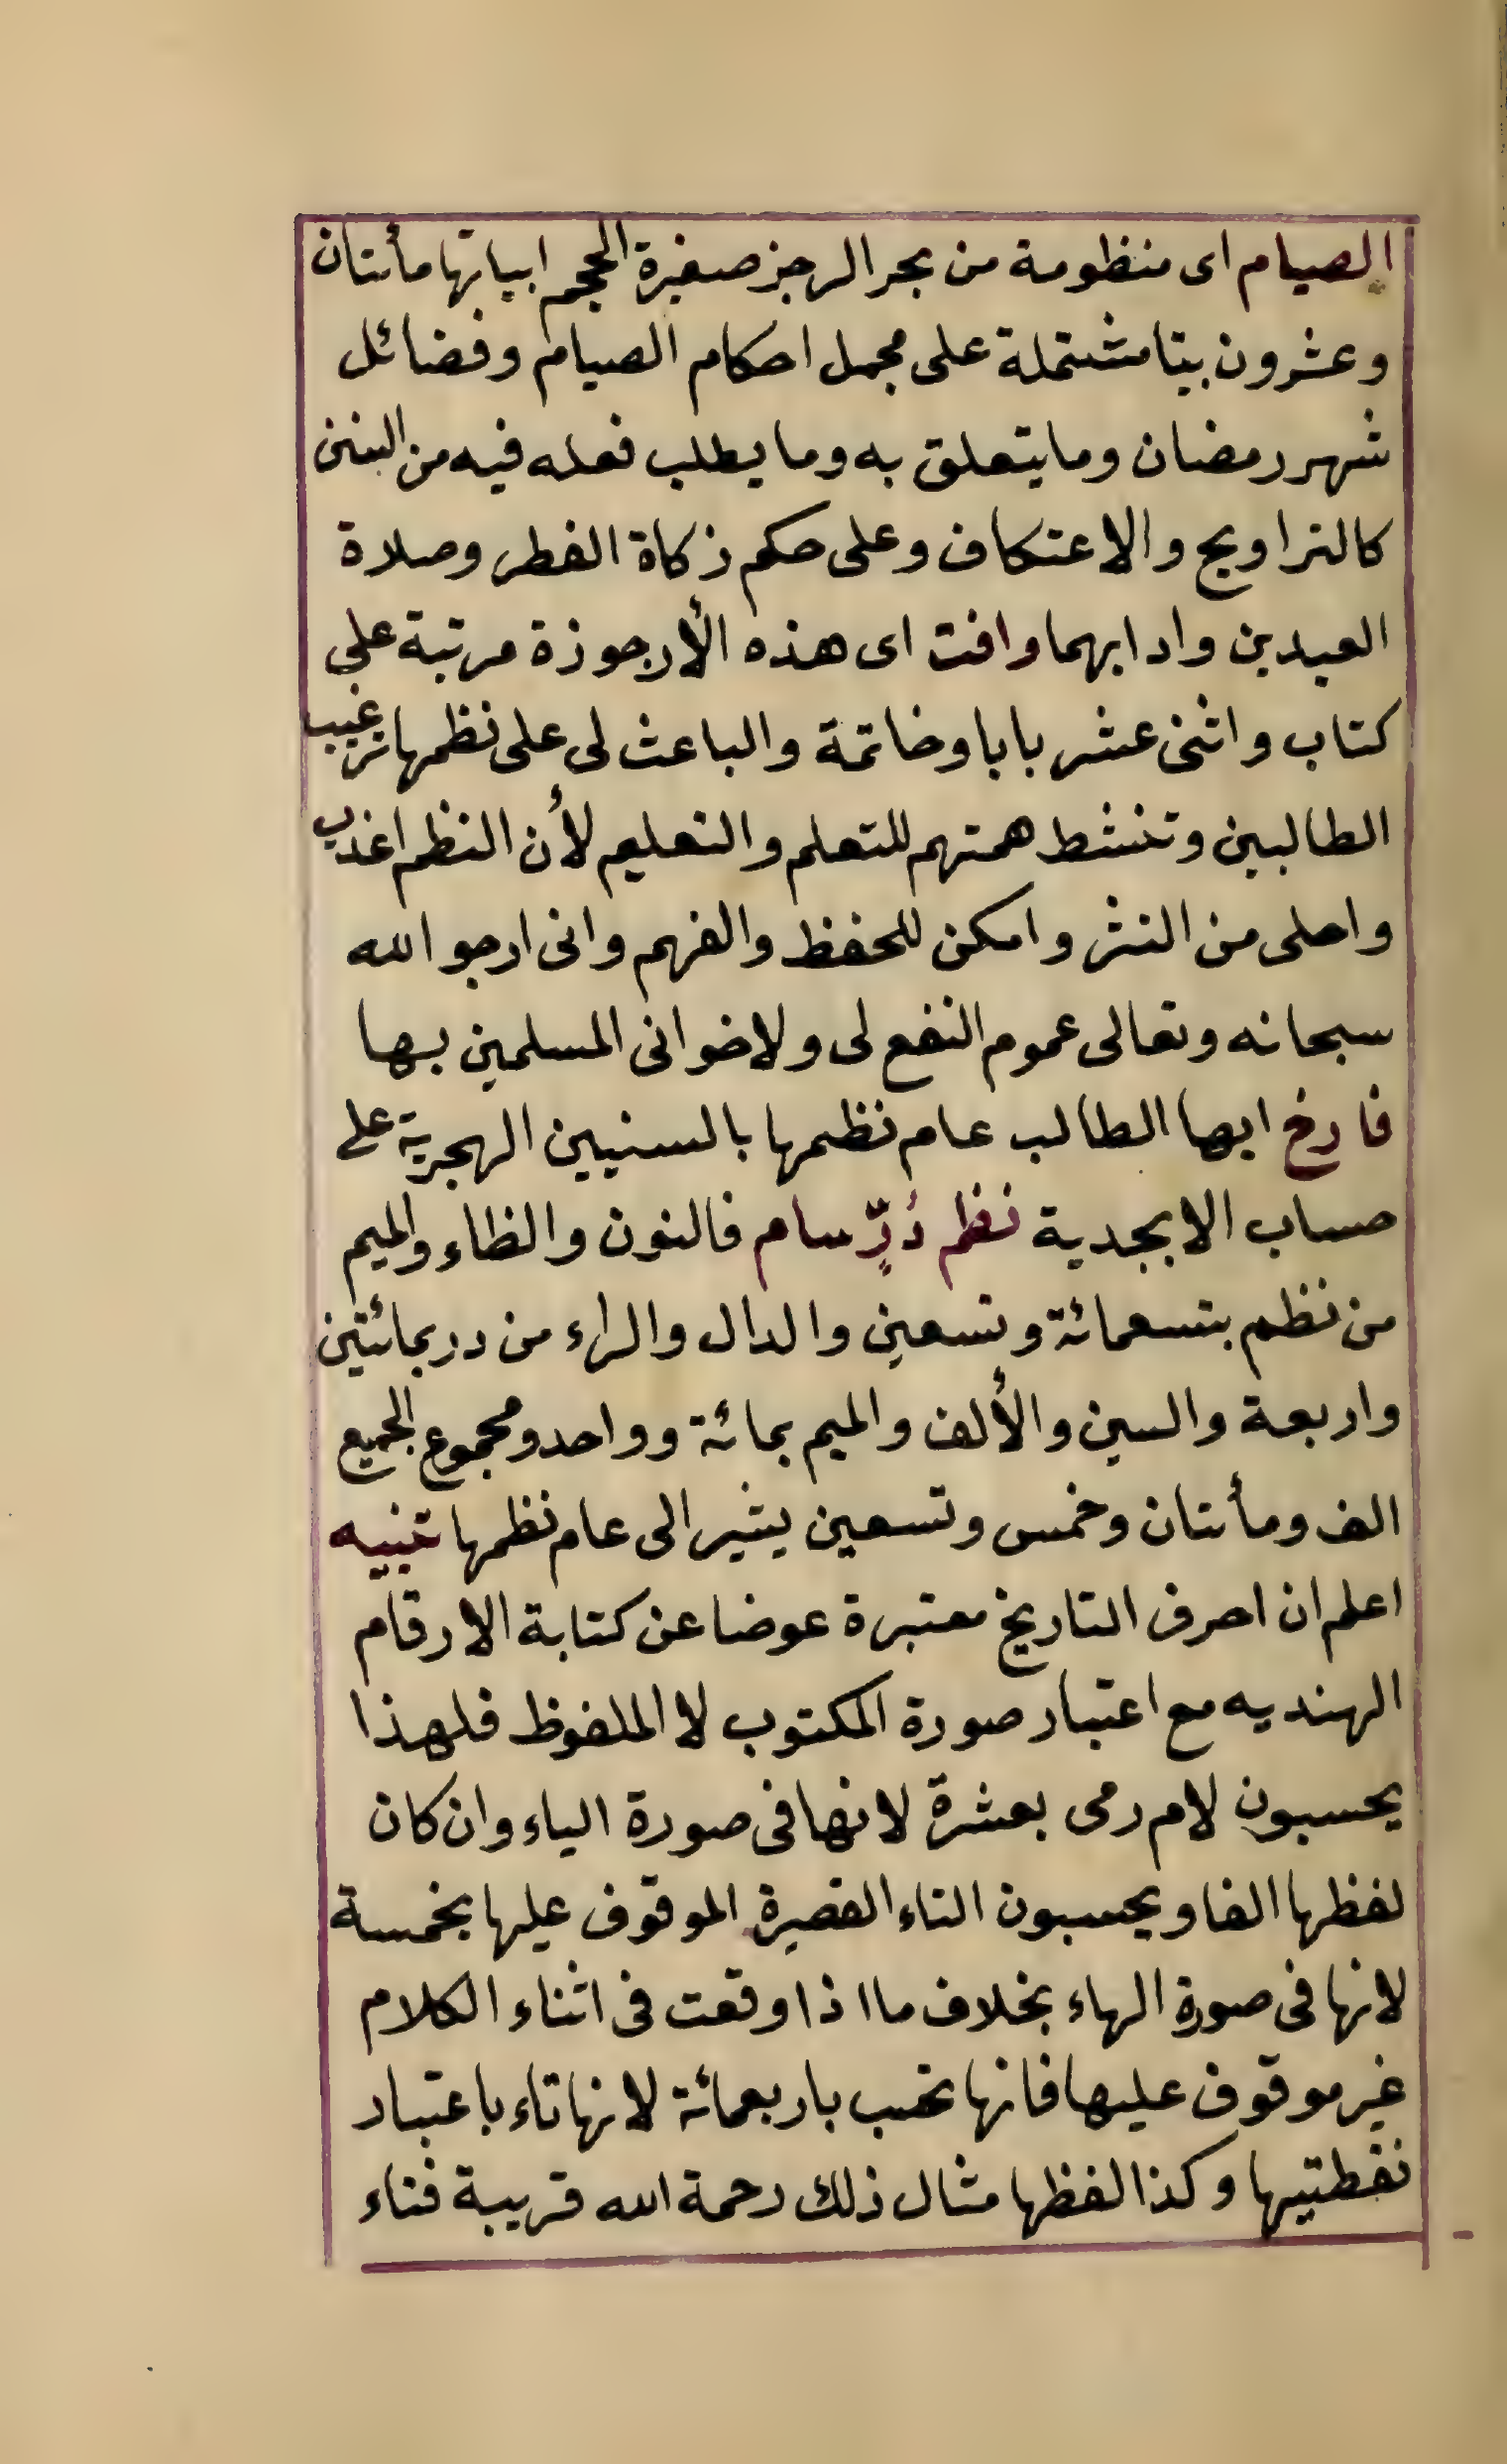 الصيام اى منظومة من بحر الرجز صغيرة الحجم ابياتها مأتتان
وعشرون بيتا مشتملة على مجمل احكام الصيام وفضائل
شهر رمضان وما يتعلق به وما يطلب فعله فيه من السنن
كالتراويح والاعتكاف وعلى حكم زكاة الفطر وصلاة
العيدين وادابهما وافت اى هذه الأرجوزة مرتبة على
كتاب واثنى عشر بابا وخاتمة والباعث لى على نظمها ترغيب
الطالبين وتنشط همتهم للتعلم والتعليم لأن النظم اعذب
واحلى من النثر وامكن للحفظ والفهم وانى ارجو الله
سبحانه وتعالى عموم النفع لى ولاخوانى المسلمين بها
فارخ ايها الطالب عام نظمها بالسنيين الهجرية على
حساب الابجدية نظم دُرٍّ سام فالنون والظاء والميم
من نظم بتسعمائة وتسعين والدال والراء من در بمائتين
واربعة والسين والألف والميم بمائة وواحد ومجموع الجميع
الف ومأتتان وخمس وتسعين يشير الى عام نظمها تنبيه
اعلم ان احرف التاريخ معتبرة عوضا عن كتابة الارقام
الهنديه مع اعتبار صورة المكتوب لا الملفوظ فلهذا
يحسبون لام رمى بعشرة لانها فى صورة الياء وان كان
لفظها الفا ويحسبون التاء القصيرة الموقوف عليها بخمسة
لانها فى صورة الهاء بخلاف ما اذا وقعت فى اثناء الكلام
غير موقوف عليها فانها تحسب باربعمائة لانها تاء باعتبار
نقطتيها وكذا لفظها مثال ذلك رحمة الله قريبة فتاء